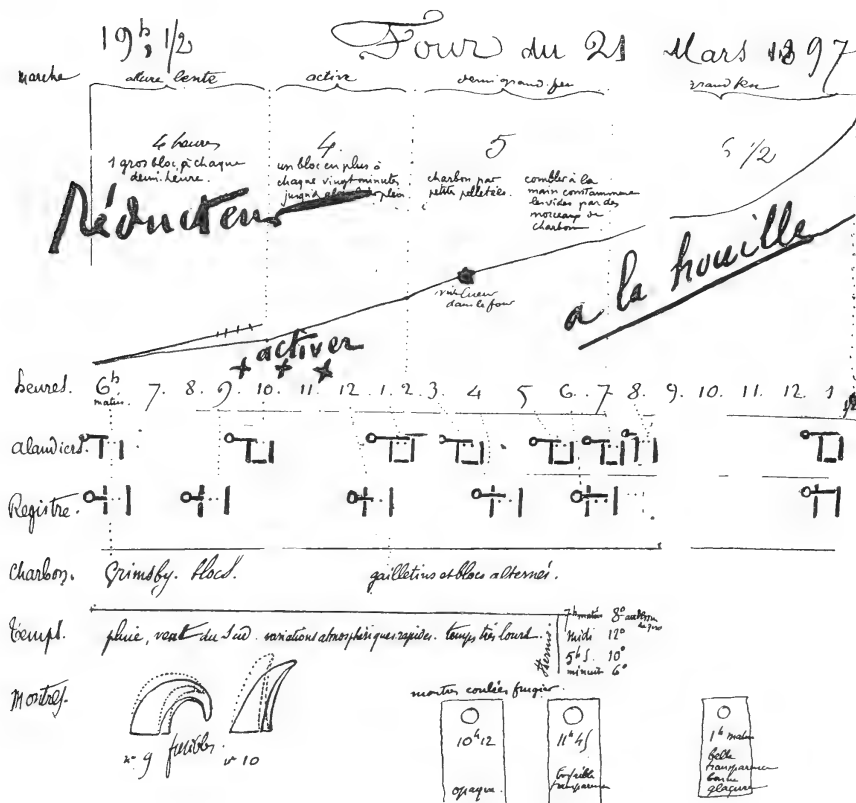 19h, 1/2 Four du 21 Mars 1897
marche allure lente active demi grand feu grand feu
4 heures 4. 5 5 1/2
1 gros bloc p. chaque
demi-heure.
un bloc en plus à
chaque vingt minutes
jusqu'à
charbon par
petites pelletées.
combler à la
main constamment
les vides par des
morceaux de
charbon
Réducteur
à la houille
dans le four
activer
heures. 6h matin. 7. 8. 9. 10. 11. 12. 1. 2. 3. 4 5 6. 7. 8. 9. 10. 11. 12. 1 1/2
alandiers.
Registre.
Charbon. Grimsby. blocs. gailletins et blocs alternés.
Temps. pluie, vent du Sud. variations atmosphériques rapides. temps très lourd.
7h matin 8°
midi 12°
5h S. 10°
minuit 6°
Montres.
n° 9 fusibles. n° 10
montres coulées fugier.
10h12
opaque
11h45
faible
transparence
1h matin
belle
transparence
bonne
glaçure